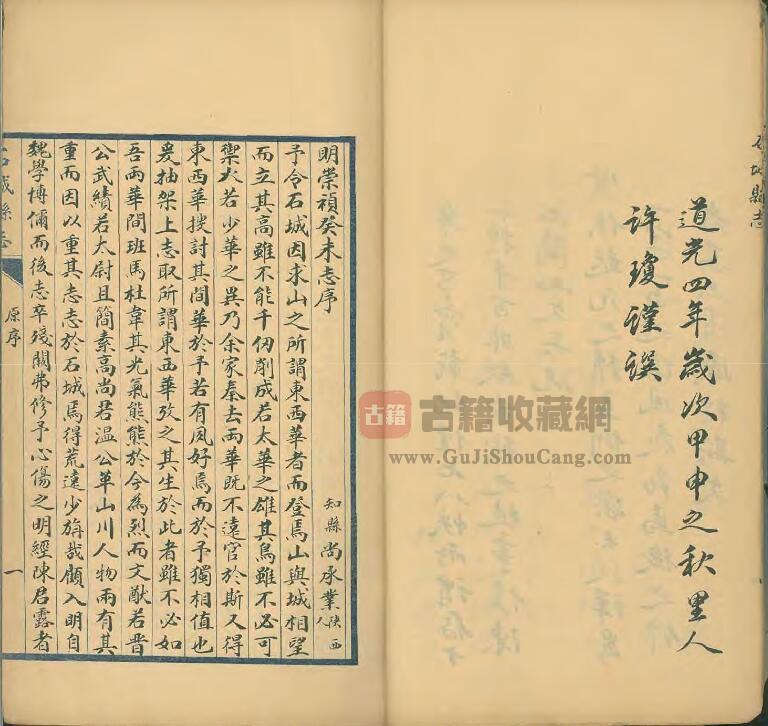 道光四年歲次甲申之秋里人
許瓊謹譔
石城縣志
古籍
古籍收藏網
www.GuJiShouCang.com
明崇禎癸未志序
知縣尚承業陝西人
予令石城因求山之所謂東西華者而登焉山與城相望
而立其高雖不能千仞削成若太華之雄其鳥雖不必可
禦火若少華之異乃余家秦去兩華既不遠官於斯又得
東西華搜討其間華於予若有夙好焉而於予獨相值也
爰抽架上志取所謂東西華攷之其生於此者雖不必如
吾兩華間班馬杜韋其光氣熊熊於今為烈而文猷若晋
公武績若太尉且簡素高尚若溫公革山川人物兩有其
重而因以重其志志於石城焉得荒遠少旃哉顧入明自
魏學博儞而後志卒殘闕弗修予心傷之明經陳君露者
石城縣志
原序
一